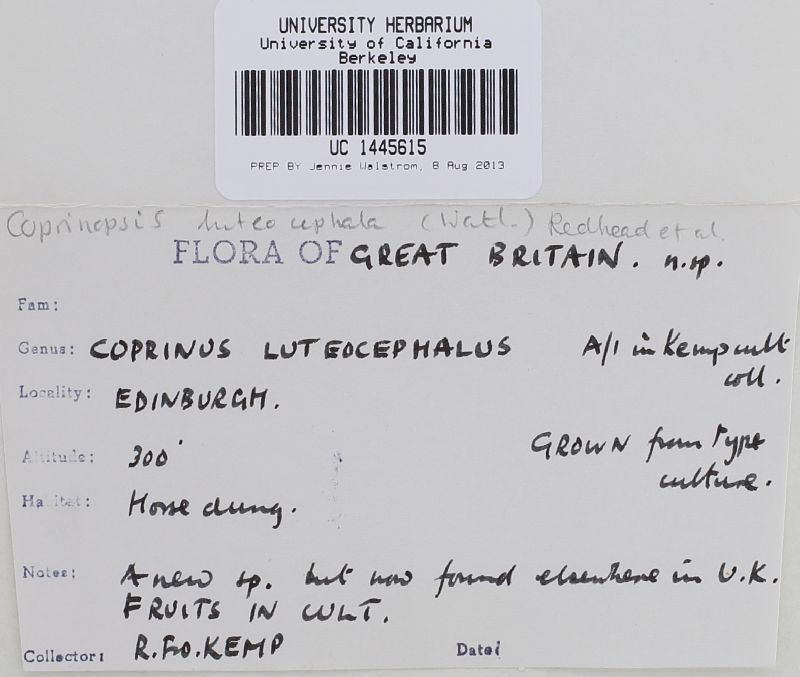 UNIVERSITY HERBARIUM
University of California
Berkeley
UC 1445615
PREP BY Jennie Walstrom, 8 Aug 2013
Coprinopsis luteocephala (Watl.) Redhead et al.
FLORA OF GREAT BRITAIN. n.sp.
Fam:
Genus: COPRINUS LUTEOCEPHALUS A/1 in Kemp cult
coll.
Locality: EDINBURGH.
Altitude: 300'
GROWN from type
culture.
Habitat: Horse dung.
Notes: A new sp. but now found elsewhere in U.K.
FRUITS IN CULT.
Collector: R.F.O.KEMP Date: